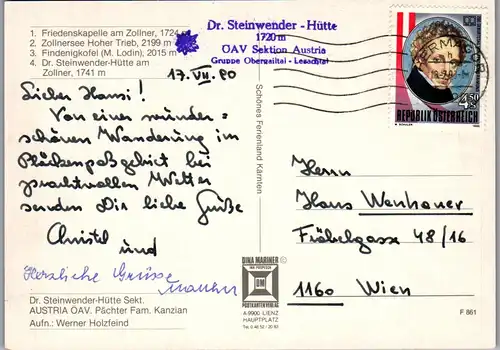 1. Friedenskapelle am Zollner, 1724 m
2. Zollnersee Hoher Trieb, 2199 m
3. Findenigkofel (M. Lodin), 2015 m
4. Dr. Steinwender-Hütte am
Zollner, 1741 m
Dr. Steinwender - Hütte
1720 m
ÖAV Sektion Austria
Gruppe Obergailtal - Lesachtal
17. VII. 90
Lieber Hansi!
Von einer wunder=
schönen Wanderung im
Plöckenpaßgebiet bei
prachtvollem Wetter
senden Dir liebe Grüße
Christel und
Herzliche Grüsse
Dr. Steinwender-Hütte Sekt.
AUSTRIA ÖAV. Pächter Fam. Kanzian
Aufn.: Werner Holzfeind
Schönes Ferienland Kärnten.
DINA MARINER ©
DM
POSTKARTENVERLAG
A-9900 LIENZ
HAUPTPLATZ
Tel. 0 48 52 - 20 83
HERMAGOR
4.50
S
REPUBLIK ÖSTERREICH
Herrn
Hans Wenhauer
Fröbelgasse 48/16
1160 Wien
F 861